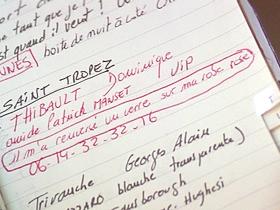 tant que je
est quand il veut ! Vo
NNES boîte de nuit à côté
SAINT TROPEZ
THIBAULT Dominique
guide Patrick MANSET VIP
il m'a renversé un verre sur ma robe rose
06-14-32-32-16
Trivauche Georges Alain
ZZARD blanche transparente)
nsborough
Hughesi